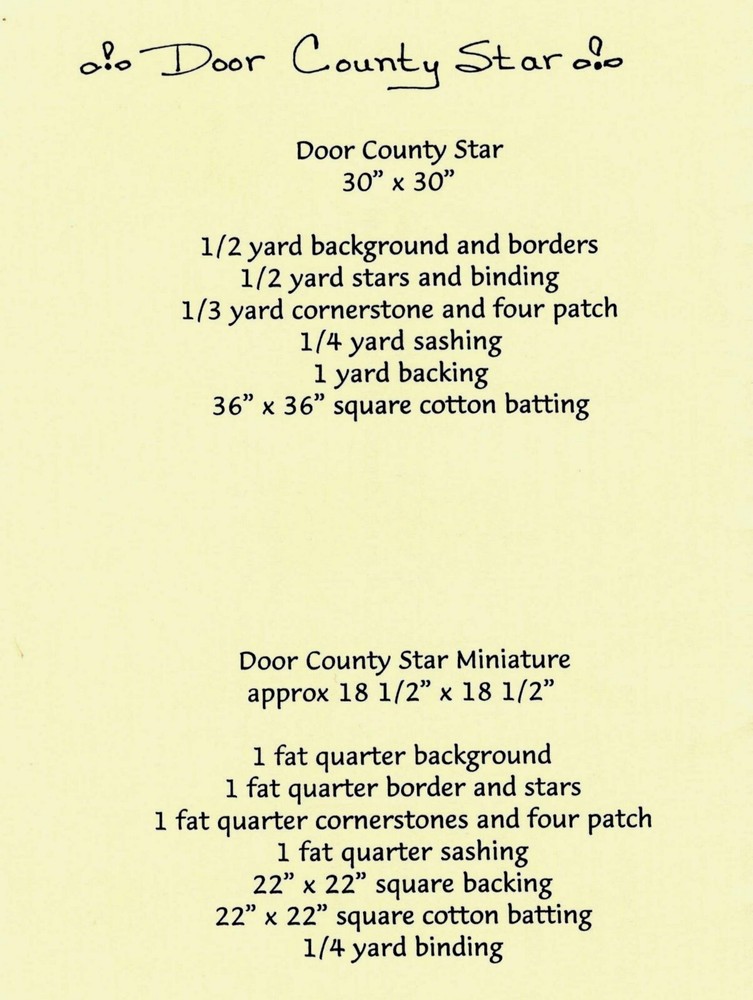 Door County Star
Door County Star
30” x 30”
1/2 yard background and borders
1/2 yard stars and binding
1/3 yard cornerstone and four patch
1/4 yard sashing
1 yard backing
36” x 36” square cotton batting
Door County Star Miniature
approx 18 1/2” x 18 1/2”
1 fat quarter background
1 fat quarter border and stars
1 fat quarter cornerstones and four patch
1 fat quarter sashing
22” x 22” square backing
22” x 22” square cotton batting
1/4 yard binding